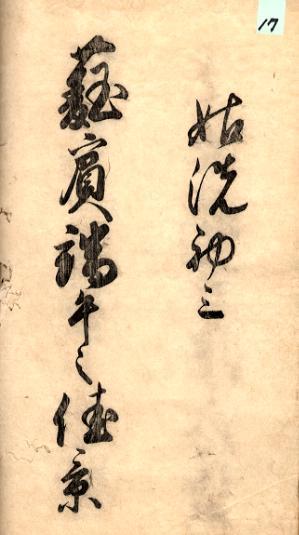 17
姑洗初三
蕤賓端午之佳景